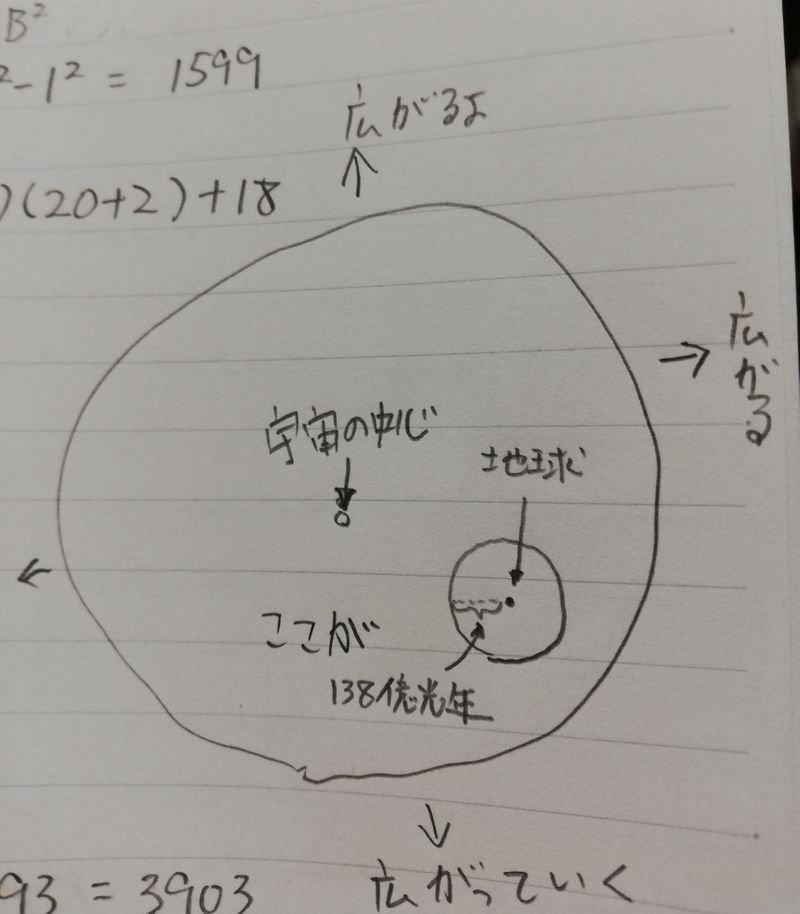 B²
²-1² = 1599
広がるよ
)(20+2)+18
広がる
宇宙の中心
地球
ここが
138億光年
93 = 3903
広がっていく